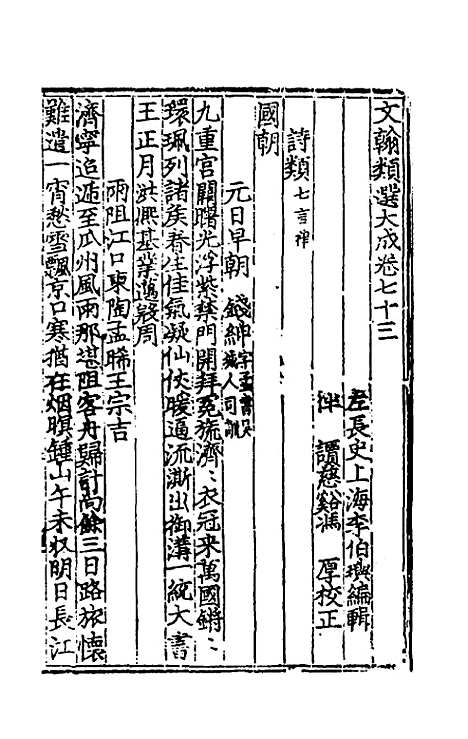 文翰類選大成卷七十三
左長史上海李伯璵編輯
伴　讀慈谿馮　厚校正
詩類 七言律
國朝
元日早朝　錢紳 字孟書吳 人司訓
九重宮闕曙光浮紫禁門開拜冕旒濟〻衣冠來萬國鏘〻
環珮列諸侯春生佳氣凝仙仗暖逼流澌出御溝一統大書
王正月洪熙基業邁殷周
雨阻江口柬陶孟暘王宗吉
濟寧迢遞至瓜州風雨那堪阻客舟歸計尚餘三日路旅懷
難遣一宵愁雪飄京口寒猶在烟暝鍾山午未收明日長江